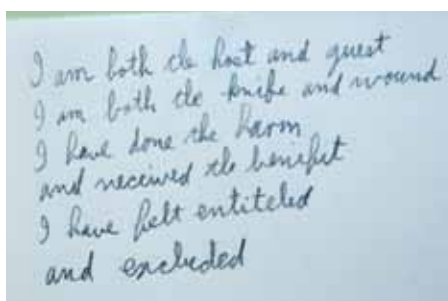 I am both the host and guest
I am both the knife and wound
I have done the harm
and received the benifit
I have felt entitled
and excluded